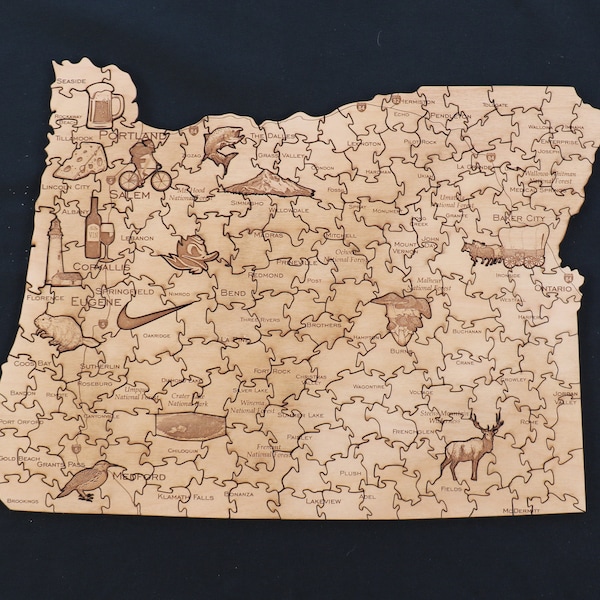 Seaside
Rockaway
Beach
Portland
Tillamook
Hermiston
Echo
Pendleton
Tollgate
Enterprise
Joseph
The Dalles
Lexington
Pilot Rock
Grass Valley
La Grande
Condon
Hardman
Ukiah
Lincoln City
Salem
Mt Hood
National Forest
Fossil
Simnasho
Willowdale
Spray
Monument
Granite
Baker City
Albany
Lebanon
Madras
Mitchell
Ochoco
National Forest
Mount
Vernon
John
Day
Corvallis
Prineville
Redmond
Malheur
National Forest
Ironside
Ontario
Florence
Springfield
Eugene
Nimrod
Bend
Post
Westfall
Harper
Three Rivers
Brothers
Oakridge
Hampton
Buchanan
Burns
Coos Bay
Sutherlin
Crane
Roseburg
Fort Rock
Christmas
Valley
Wagontire
Crowley
Bandon
Remote
Umpqua
National Forest
Crater Lake
National Park
Winema
National Forest
Silver Lake
Voltage
Jordan
Valley
Port Orford
Summer Lake
Steens Mountain
Wilderness
Rome
Frenchglen
Paisley
Chiloquin
Fremont
National Forest
Gold Beach
Grants Pass
Medford
Plush
Fields
Brookings
Klamath Falls
Bonanza
Lakeview
Adel
McDermitt